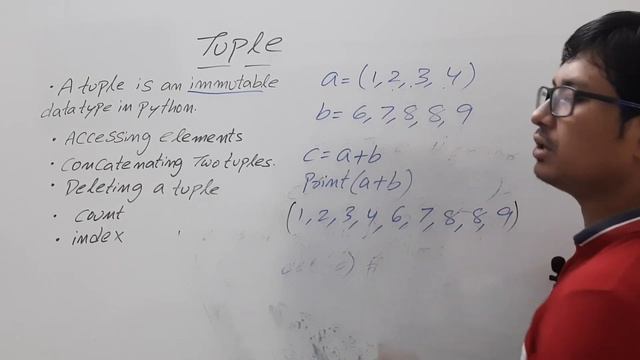 Tuple
• A tuple is an immutable
data type in python.
• Accessing elements
• Concatenating Two tuples.
• Deleting a tuple
• count
• index
a = (1, 2, 3, 4)
b = 6, 7, 8, 8, 9
c = a+b
Print(a+b)
(1, 2, 3, 4, 6, 7, 8, 8, 9)